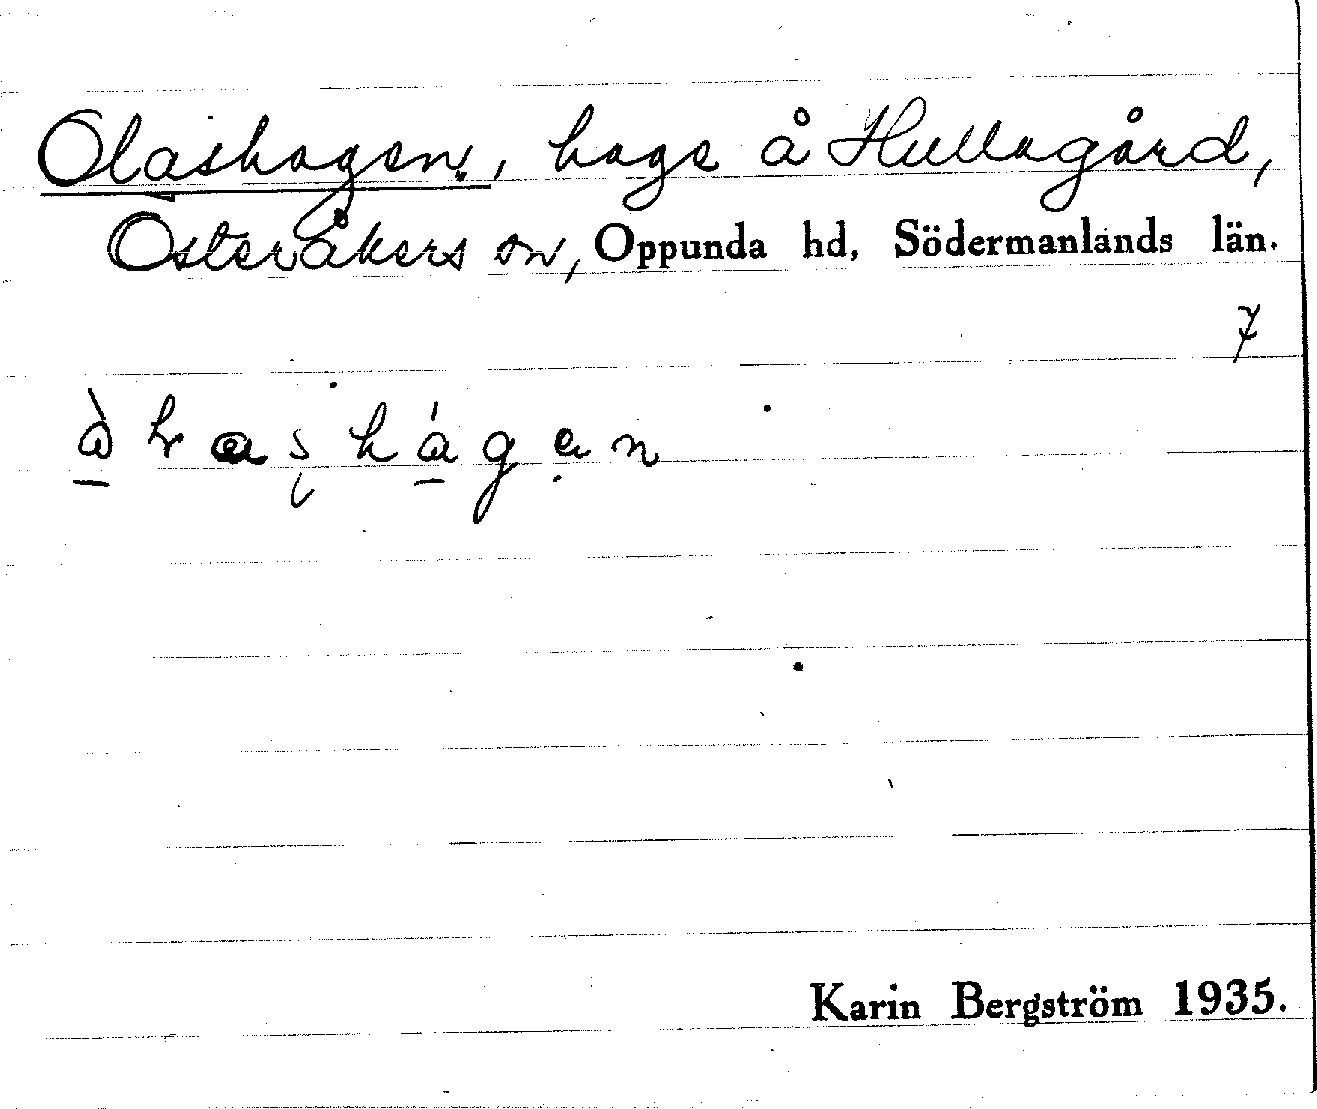 Olashagen, hage å Hullagård,
Österåkers sn, Oppunda hd, Södermanlands län.
7
Karin Bergström 1935.